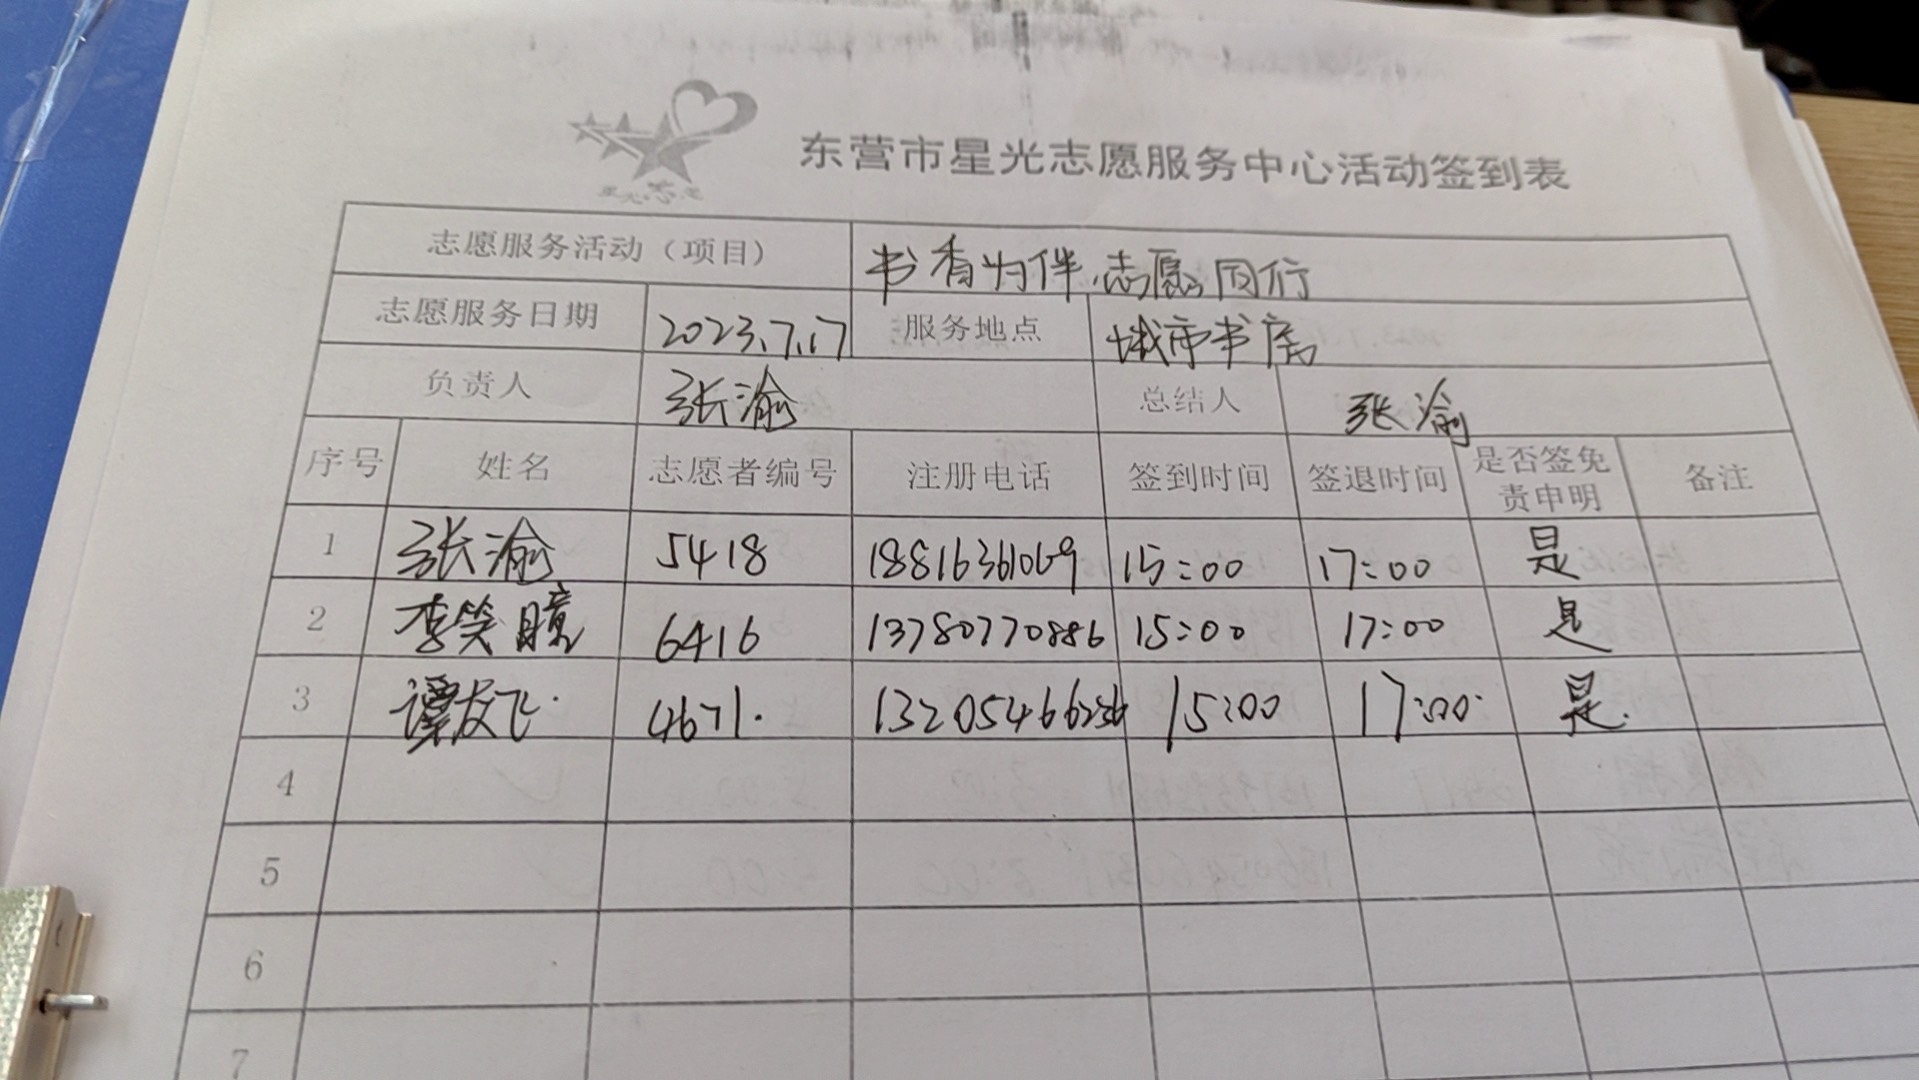 东营市星光志愿服务中心活动签到表
志愿服务活动（项目） 书香为伴.志愿同行
志愿服务日期 2023.7.17 服务地点 城市书房
负责人 张渝 总结人 张渝
序号 姓名 志愿者编号 注册电话 签到时间 签退时间 是否签免责申明 备注
1 张渝 5418 18816361069 15:00 17:00 是
2 李笑瞳 6416 13780770886 15:00 17:00 是
3 谭友飞 4671. 13205466236 15:00 17:00 是.
4
5
6
7